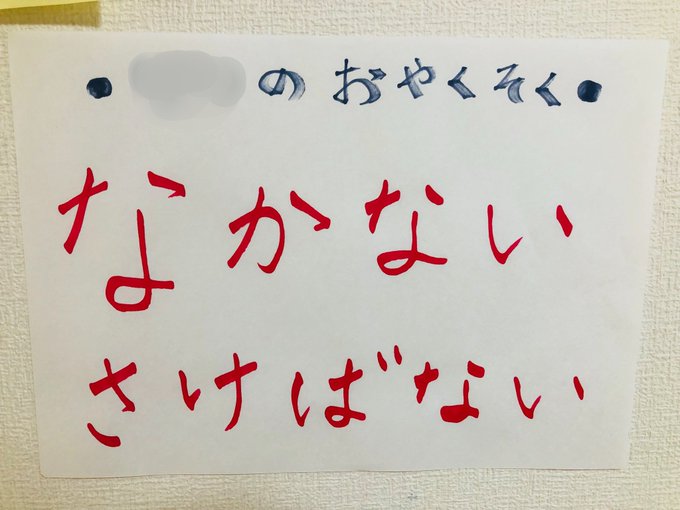 ●のおやくそく●
なかない
さけばない